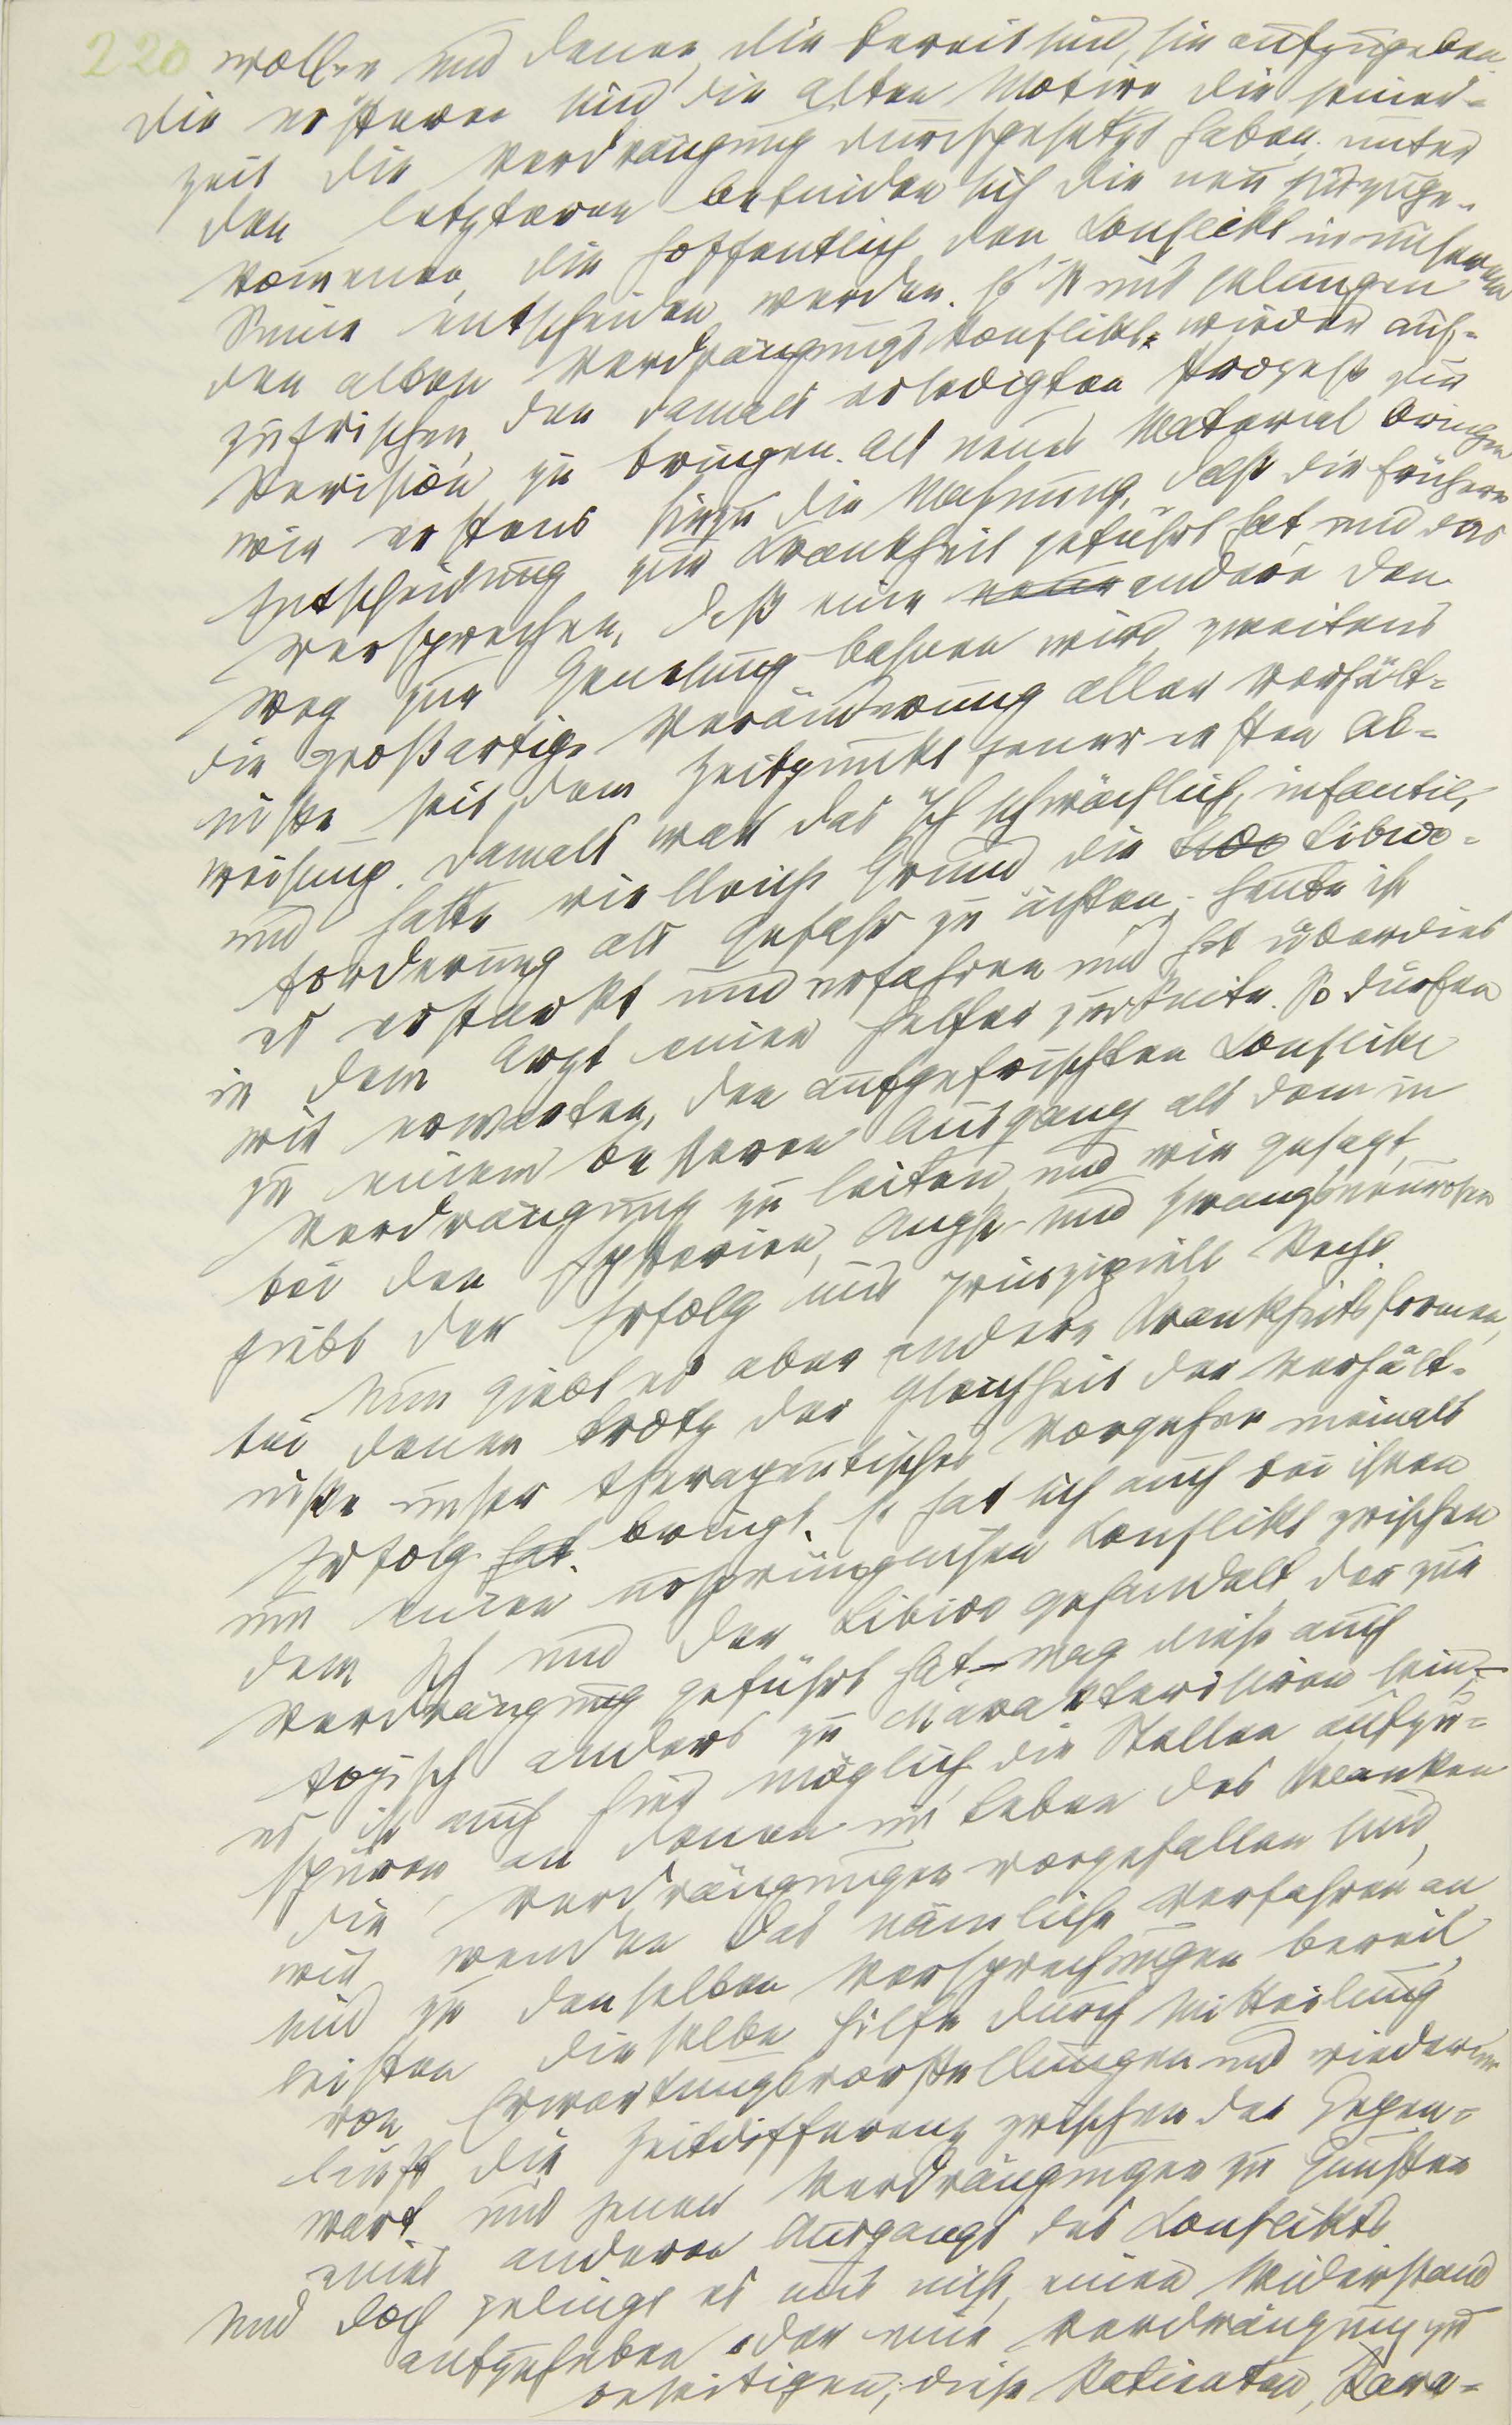 220 wollen und denen, die bereit sind, sie aufzugeben.
Die ersteren sind die alten Motive, die seiner-
zeit die Verdrängung durchgesetzt haben; unter
den letzteren befinden sich die neu hinzuge-
kommenen, die hoffentlich den Konflikt in unserem
Sinne entscheiden werden. Es ist uns gelungen
den alten Verdrängungskonflikt wieder auf-
zufrischen, den damals erledigten Prozeß zur
Revision zu bringen. Als neues Material bringen
wir erstens hinzu die Mahnung, daß die frühere
Entscheidung zur Krankheit geführt hat und das
Versprechen, daß eine neue andere den
Weg zur Genesung bahnen wird, zweitens
die großartige Veränderung aller Verhält-
nisse seit dem Zeitpunkt jener ersten Ab-
weisung. Damals war das Ich schwächlich, infantil,
und hatte vielleicht Grund die Libido-
forderung als Gefahr zu ächten; heute ist
es erstarkt und erfahren und hat überdies
in dem Arzt einen Helfer zur Seite. So dürfen
wir erwarten, den aufgefrischten Konflikt
zu einem besseren Ausgang als dem in
Verdrängung zu leiten, und wie gesagt,
bei den Hysterien, Angst- und Zwangsneurosen
giebt der Erfolg uns prinzipiell Recht.
Nun giebt es aber andere Krankheitsformen,
bei denen trotz der Gleichheit der Verhält-
nisse unser therapeutisches Vorgehen niemals
Erfolg hat. bringt. Es hat sich auch bei ihnen
um einen ursprünglichen Konflikt zwischen
dem Ich und der Libido gehandelt, der zur
Verdrängung geführt hat – mag diese auch
topisch anders zu charakterisiren sein, –
es ist auch hier möglich, die Stellen aufzu-
spüren an denen im Leben des Kranken
die Verdrängungen vorgefallen sind,
wir wenden das nämliche Verfahren an
sind zu denselben Versprechungen bereit,
leisten dieselbe Hilfe durch Mitteilung
von Erwartungsvorstellungen und wiederum
läuft die Zeitdifferenz zwischen der Gegen-
wart und jenen Verdrängungen zu Gunsten
eines anderen Ausgangs des Konflikts
Und doch gelingt es uns nicht, einen Widerstand
aufzuheben oder eine Verdrängung zu
beseitigen; diese Patienten, Para-